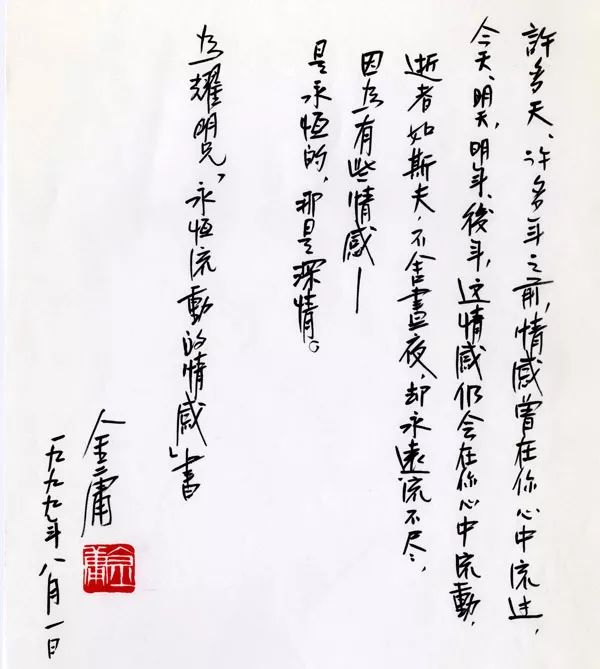 許多天、许多年之前,情感曾在你心中流过,
今天、明天,明年、後年,这情感仍会在你心中流動,
逝者如斯夫,不舍晝夜,却永遠流不尽,
因为有些情感—
是永恒的,那是深情。
为耀明兄「永恒流動的情感」書
金庸
金庸
一九九九年八月一日